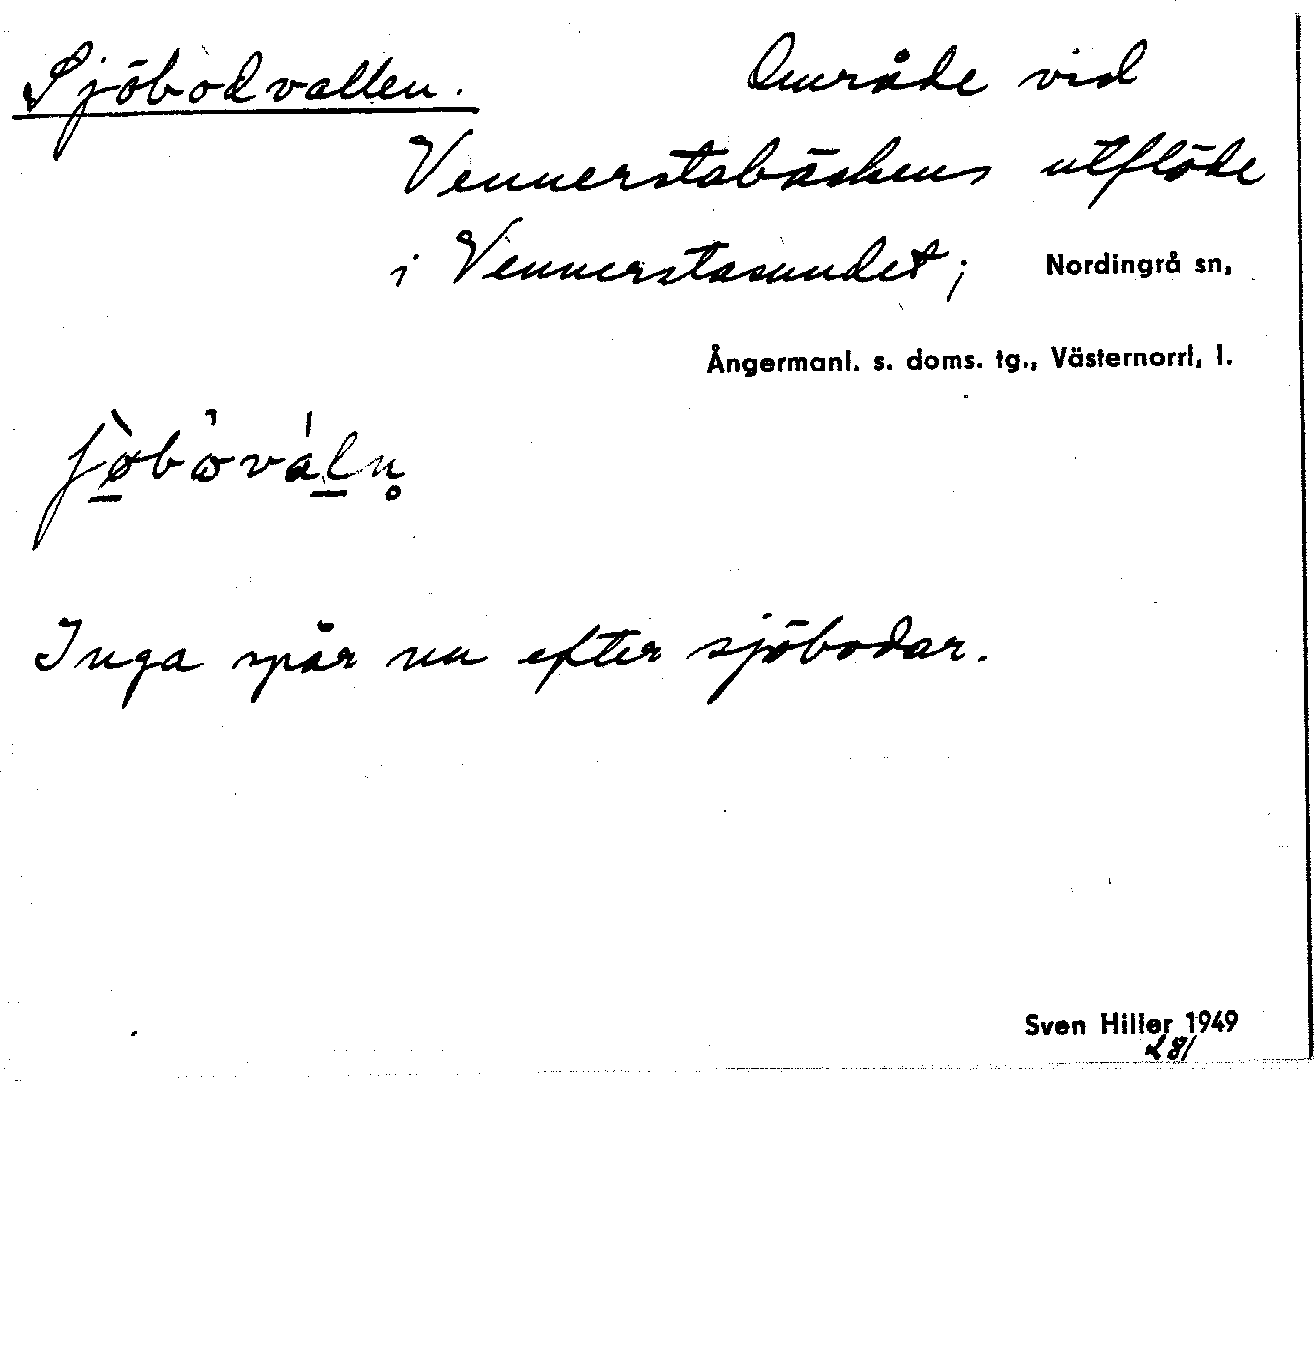 Sjöbodvallen. Område vid
Vennerstabäckens utflöde
i Vennerstasundet; Nordingrå sn,
Ångermanl. s. doms. tg., Västernorrl. l.
Inga spår nu efter sjöbodar.
Sven Hiller 1949
281